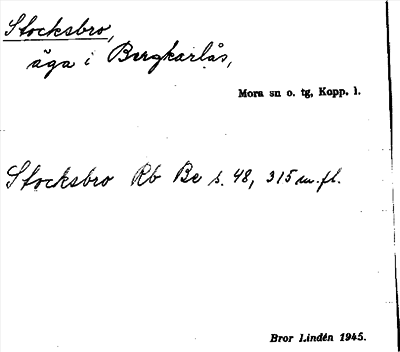 Stocksbro,
äga i Bergkarlås,
Mora sn o. tg, Kopp. l.
Stocksbro Rb Be s. 48, 315 m. fl.
Bror Lindén 1945.